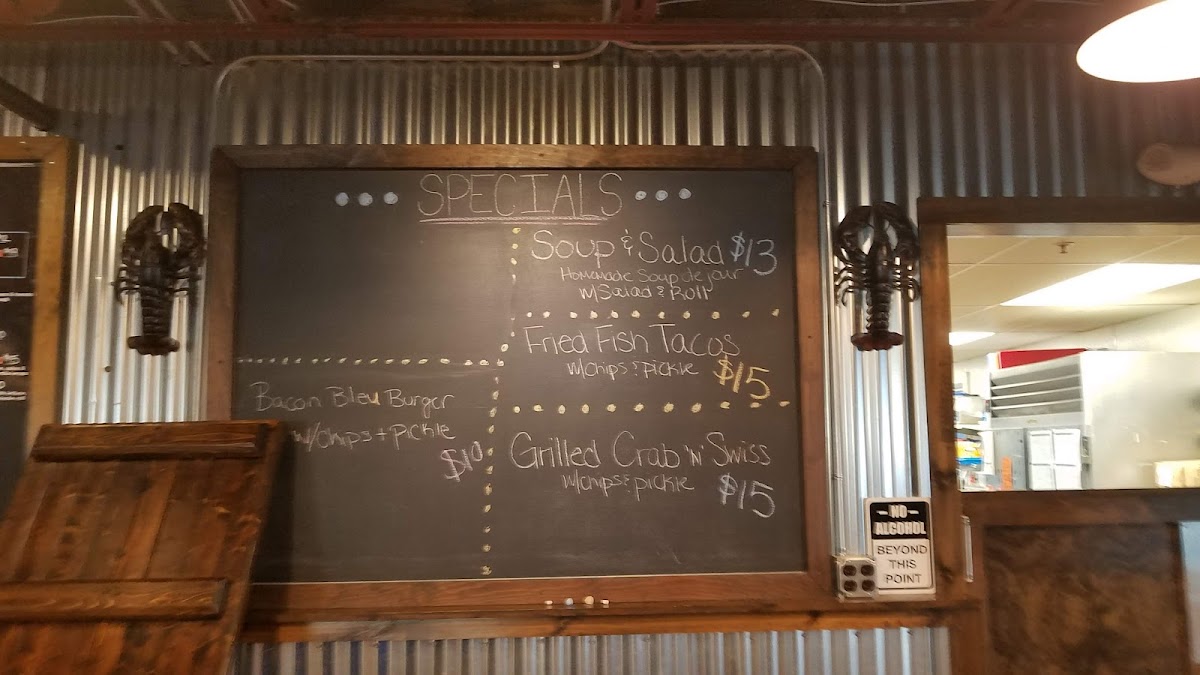 SPECIALS
Soup & Salad $13
Homemade Soup de jour
w/Salad & Roll
Fried Fish Tacos
w/chips & Pickle $15
Bacon Bleu Burger
w/chips + pickle
$10
Grilled Crab 'N' Swiss
w/chips & pickle $15
-NO-
ALCOHOL
BEYOND
THIS
POINT